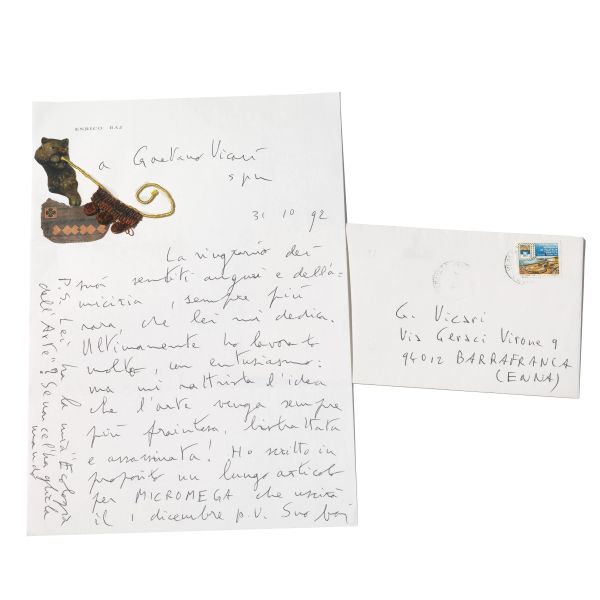 ENRICO BAJ
a Gaetano Vicari
spm
31 10 92
La ringrazio dei
suoi sentiti auguri e dell'a-
micizia, sempre più
rara, che lei mi dedica.
Ultimamente ho lavorato
molto, con entusiasmo:
ma mi rattrista l'idea
che l'arte venga sempre
più fraintesa, bistrattata
e assassinata! Ho scritto in
proposito un lungo articolo
per MICROMEGA che uscirà
il 1 dicembre p.v. Suo baj
P.S. Lei ha la mia "Ecologia
dell'Arte"? Se non ce l'ha gliela
mando
G. Vicari
Via Geraci Virone 9
94012 BARRAFRANCA
(ENNA)